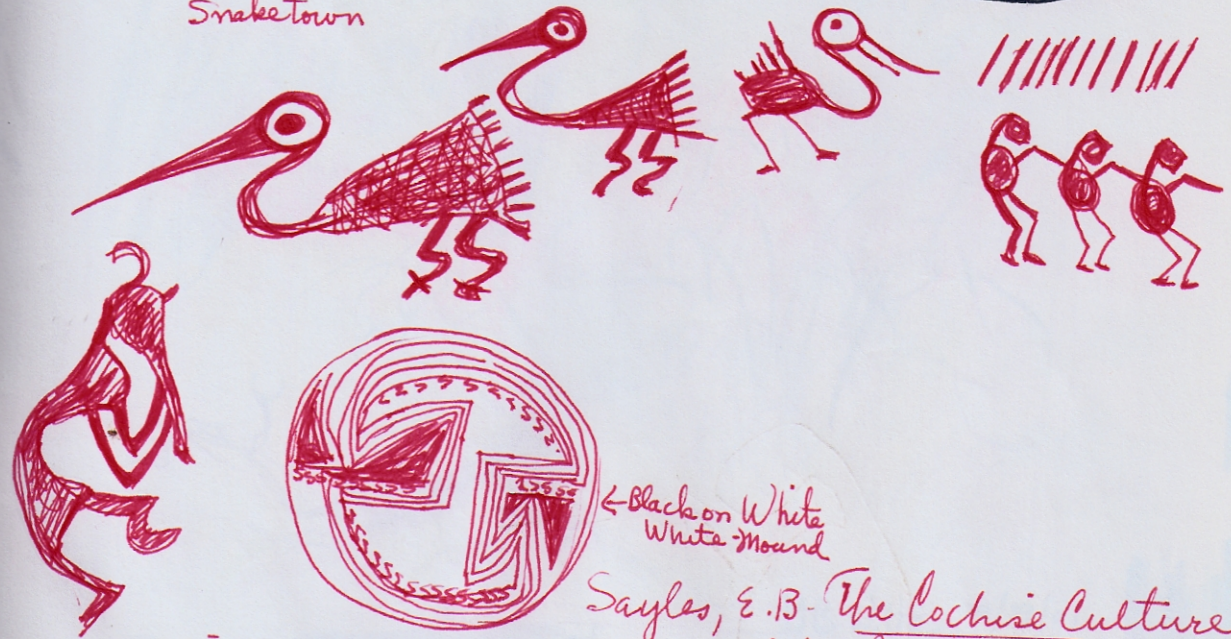 Snaketown
←Black on White
White-Mound
Sayles, E.B- The Cochise Culture